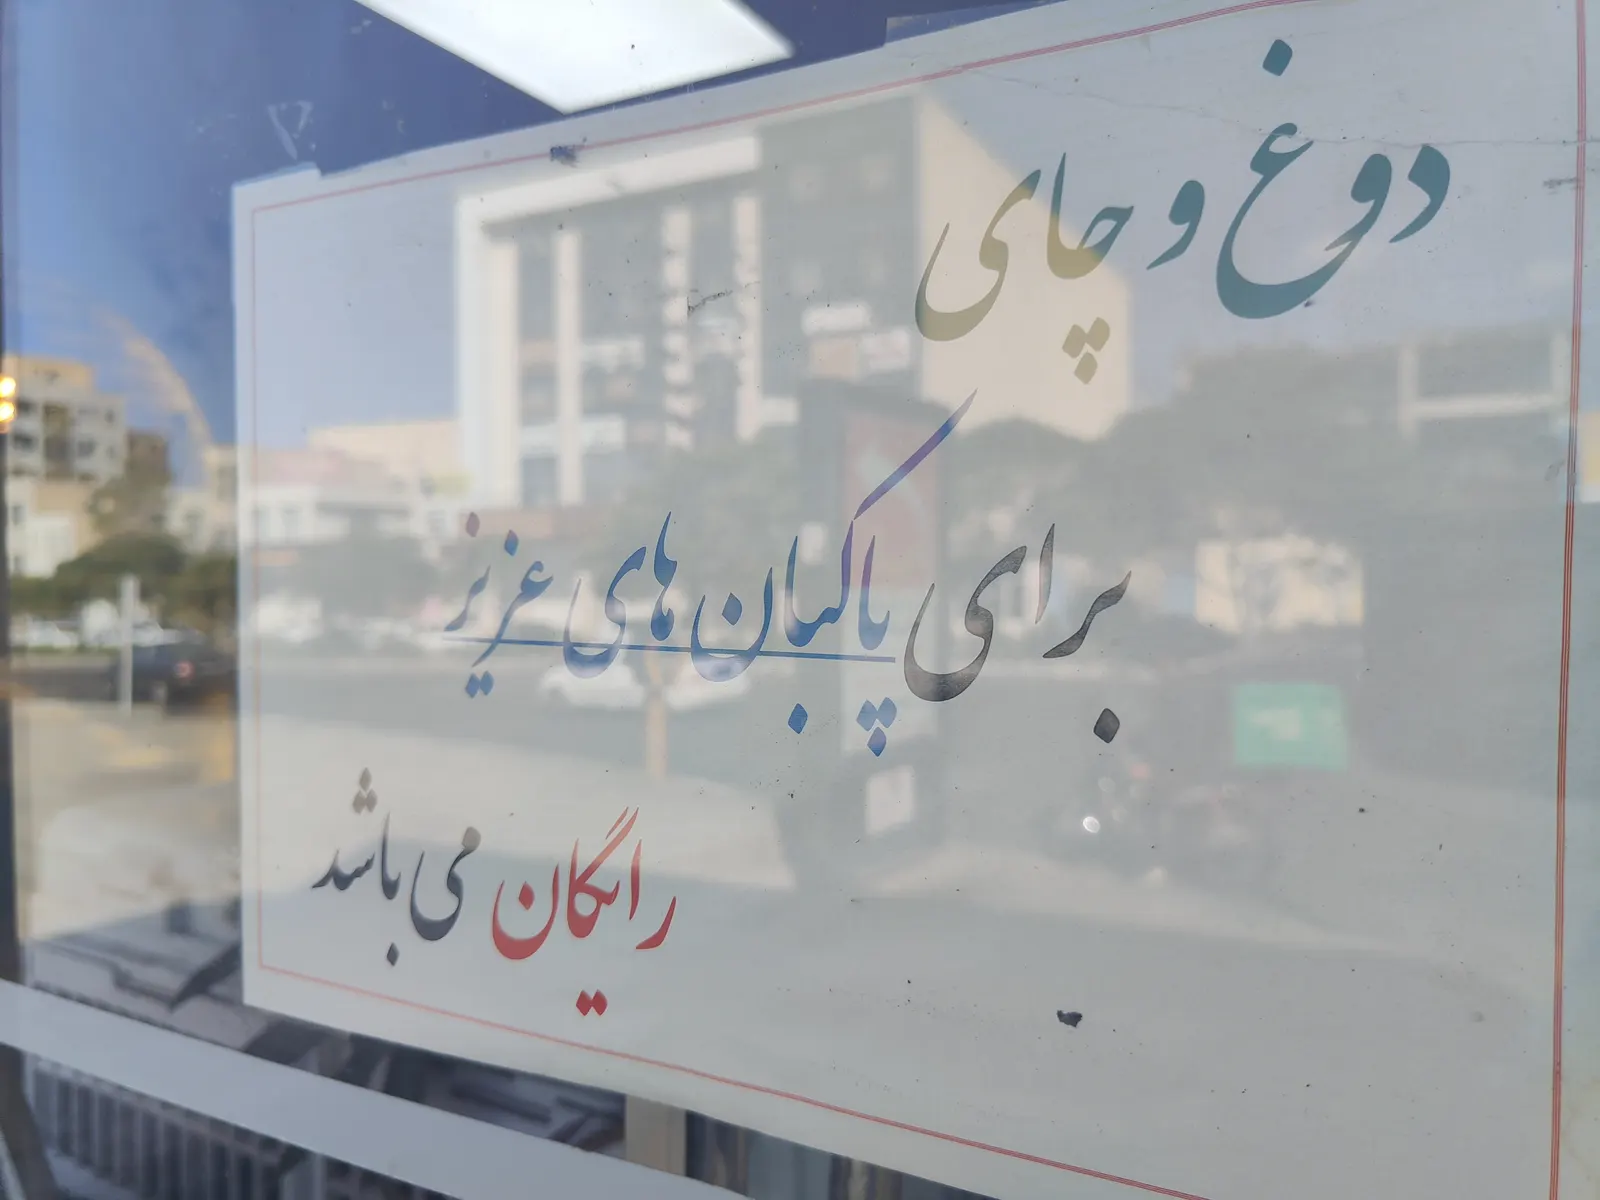 دوغ و چای
برای پاکبان های عزیز
رایگان می باشد